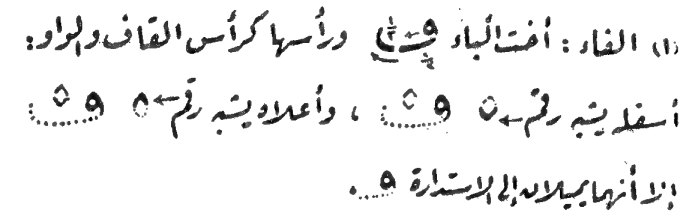 (١) الفاء : أخت الباء ف ورأسها كرأس القاف والواو :
أسفله يشبه رقم ← ٥ ف ، وأعلاه يشبه رقم ← ٥ ف
إلا أنهما يميلان إلى الاستدارة ف .